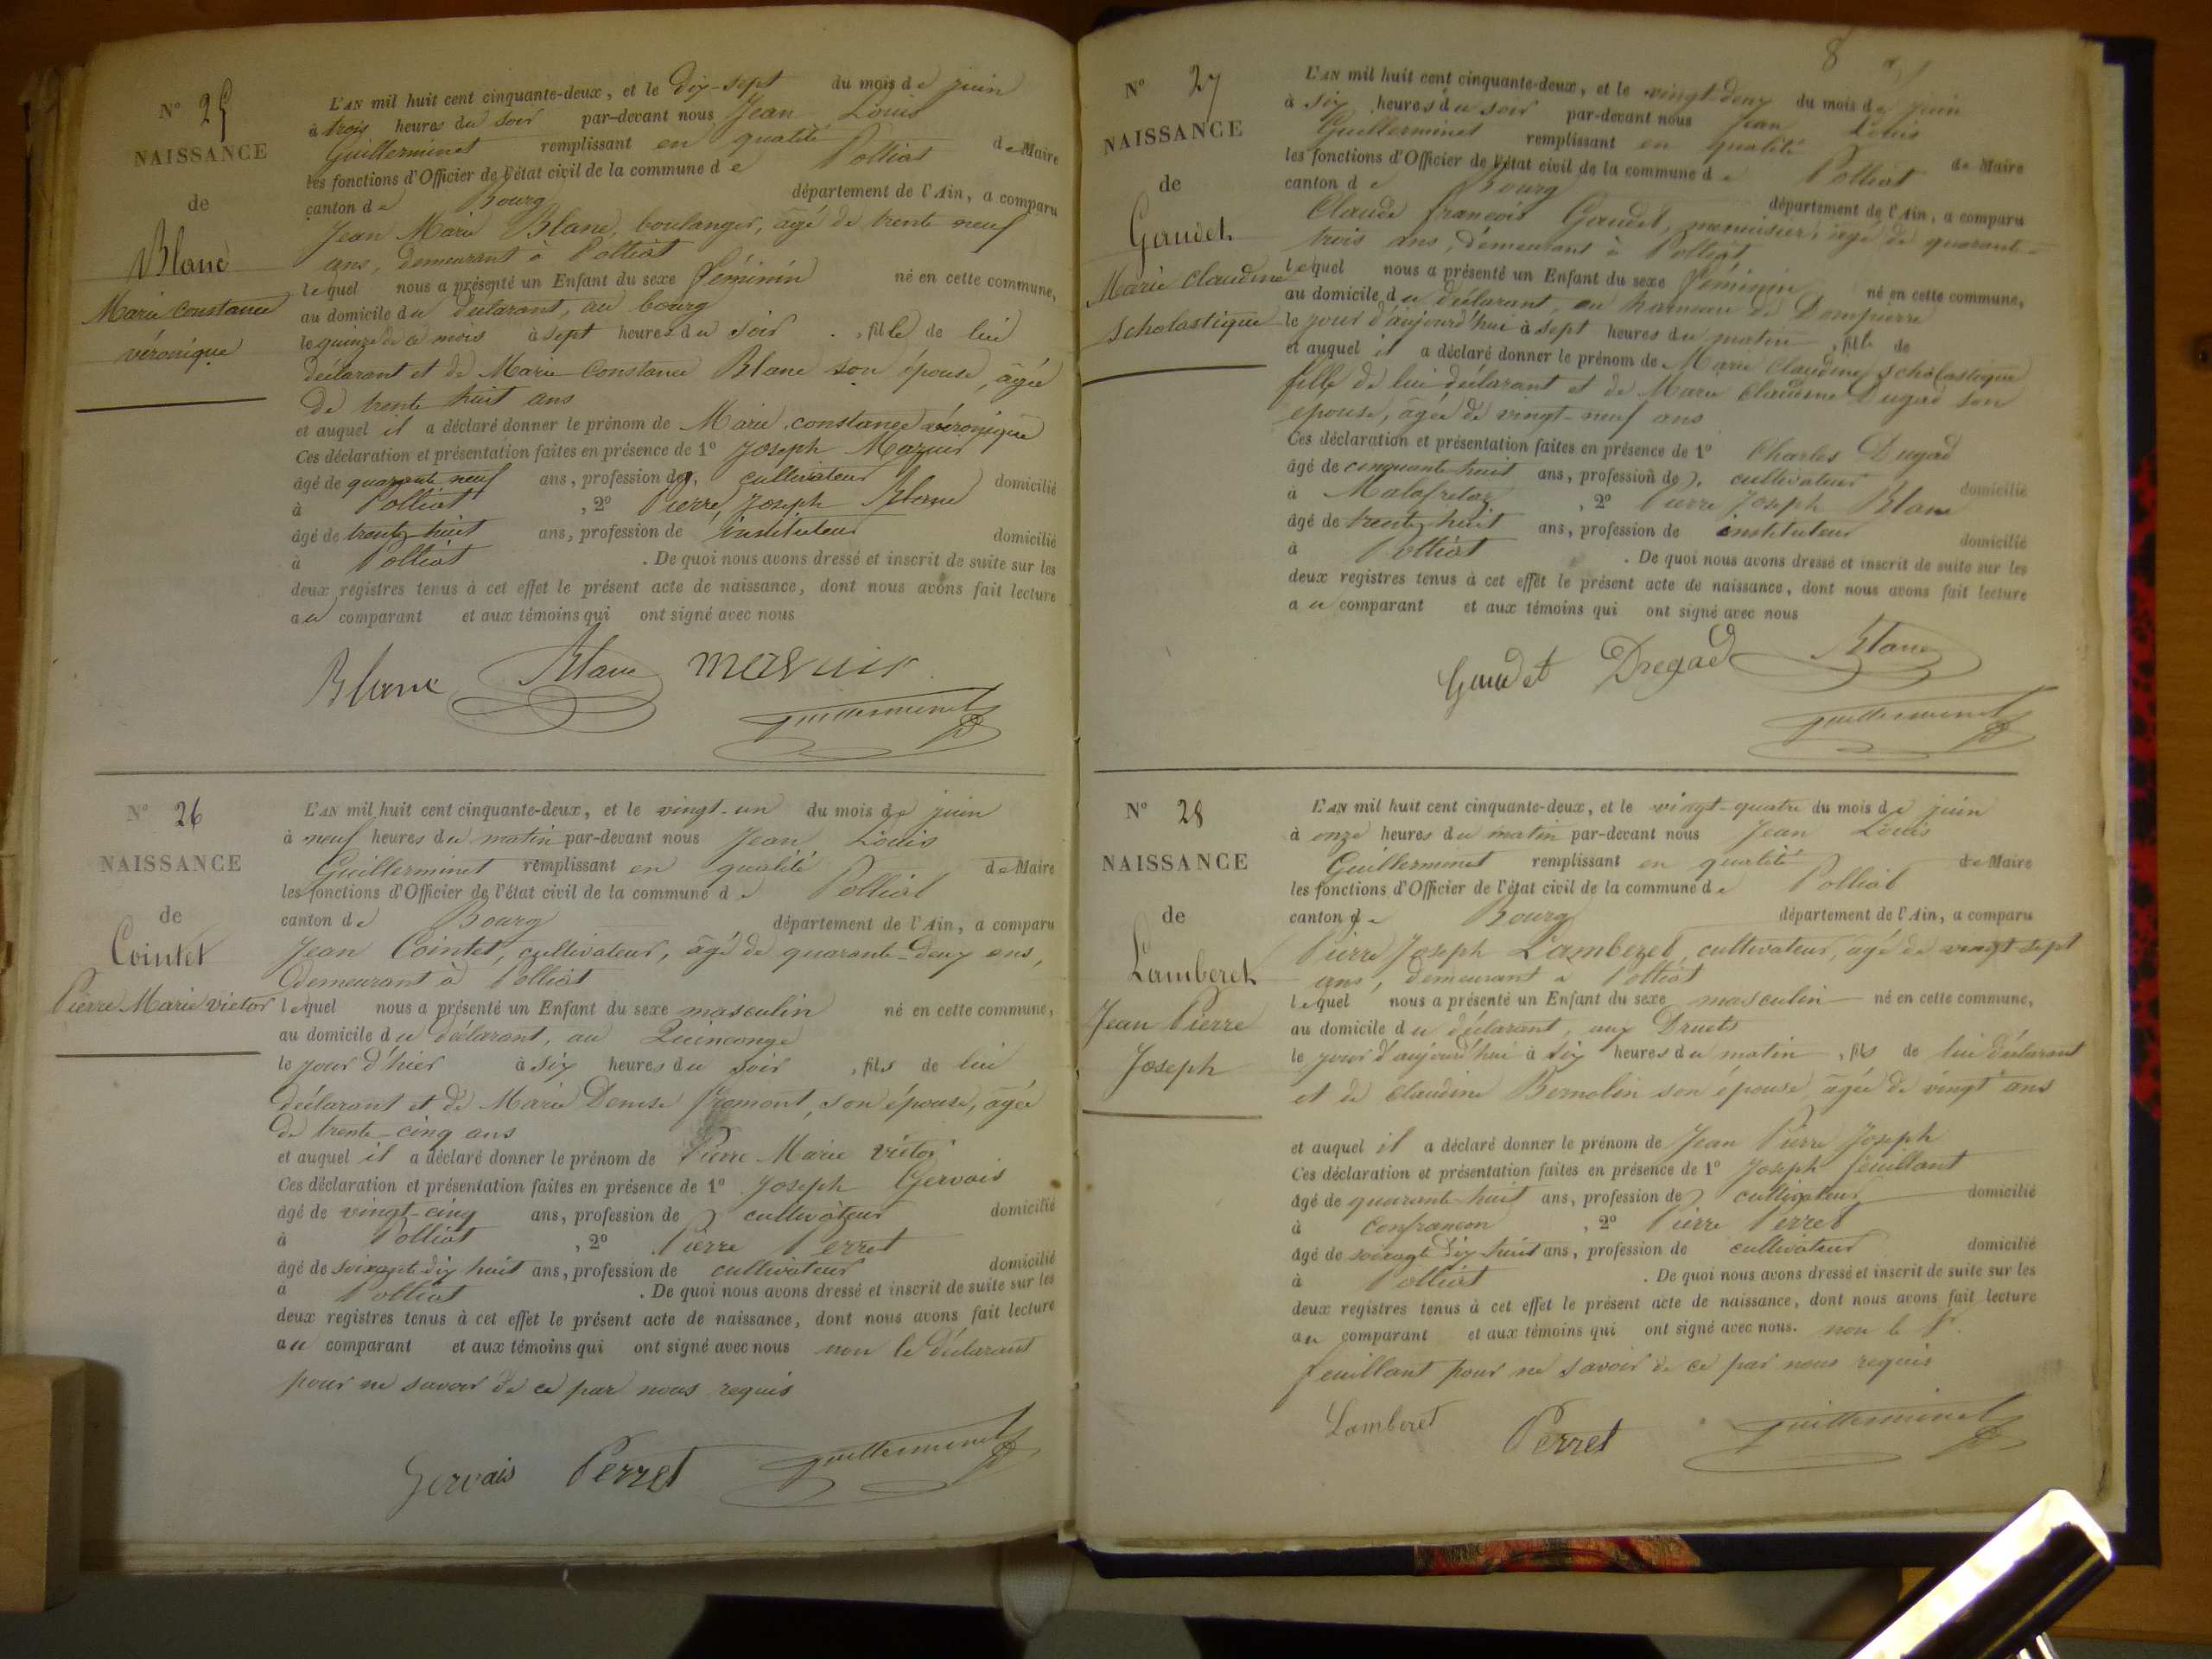 N° 25
NAISSANCE
de
Blanc
Marie Constance
véronique
L'AN mil huit cent cinquante-deux, et le dix-sept du mois de juin
à trois heures du soir par-devant nous Jean Louis
Guillerminet remplissant en qualité de Maire
les fonctions d'Officier de l'état civil de la commune de Polliat
canton de Bourg département de l'Ain, a comparu
Jean Marie Blanc, boulanger, âgé de trente neuf
ans, demeurant à Polliat
lequel nous a présenté un Enfant du sexe féminin né en cette commune,
au domicile du déclarant, au bourg
le quinze de ce mois à sept heures du soir, fille de lui
déclarant et de Marie Constance Blanc son épouse, âgée
de trente huit ans
et auquel il a déclaré donner le prénom de Marie constance véronique
Ces déclaration et présentation faites en présence de 1° Joseph Mazuir
âgé de quarante neuf ans, profession de cultivateur domicilié
à Polliat, 2° Pierre Joseph Blanc
âgé de trente-huit ans, profession de instituteur domicilié
à Polliat. De quoi nous avons dressé et inscrit de suite sur les
deux registres tenus à cet effet le présent acte de naissance, dont nous avons fait lecture
au comparant et aux témoins qui ont signé avec nous
Blanc Blanc mazuir
guillerminet
N° 26
NAISSANCE
de
Cointet
Pierre Marie victor
L'AN mil huit cent cinquante-deux, et le vingt-un du mois de juin
à neuf heures du matin par-devant nous Jean Louis
Guillerminet remplissant en qualité de Maire
les fonctions d'Officier de l'état civil de la commune de Polliat
canton de Bourg département de l'Ain, a comparu
Jean Cointet, cultivateur, âgé de quarante-deux ans,
demeurant à Polliat
lequel nous a présenté un Enfant du sexe masculin né en cette commune,
au domicile du déclarant, au Quinconge
le jour d'hier à six heures du soir, fils de lui
déclarant et de Marie Denise fromont, son épouse, âgée
de trente-cinq ans
et auquel il a déclaré donner le prénom de Pierre Marie victor
Ces déclaration et présentation faites en présence de 1° Joseph Gervais
âgé de vingt-cinq ans, profession de cultivateur domicilié
à Polliat, 2° Pierre Perret
âgé de soixante dix huit ans, profession de cultivateur domicilié
à Polliat. De quoi nous avons dressé et inscrit de suite sur les
deux registres tenus à cet effet le présent acte de naissance, dont nous avons fait lecture
au comparant et aux témoins qui ont signé avec nous non le déclarant
pour ne savoir de ce par nous requis
Gervais Perret guillerminet
8
N° 27
NAISSANCE
de
Gaudet
Marie Claudine
Scholastique
L'AN mil huit cent cinquante-deux, et le vingt-deux du mois de juin
à six heures du soir par-devant nous Jean Louis
Guillerminet remplissant en qualité de Maire
les fonctions d'Officier de l'état civil de la commune de Polliat
canton de Bourg département de l'Ain, a comparu
Claude françois Gaudet, menuisier, âgé de quarante-
trois ans, demeurant à Polliat
lequel nous a présenté un Enfant du sexe féminin né en cette commune,
au domicile du déclarant, au hameau de Dompierre
le jour d'aujourd'hui à sept heures du matin, fille de
et auquel il a déclaré donner le prénom de Marie Claudine Scholastique
fille de lui déclarant et de Marie Claudine Dugad son
épouse, âgée de vingt-neuf ans
Ces déclaration et présentation faites en présence de 1° Charles Dugad
âgé de cinquante-huit ans, profession de cultivateur domicilié
à Malafretaz, 2° Pierre Joseph Blanc
âgé de trente-huit ans, profession de instituteur domicilié
à Polliat. De quoi nous avons dressé et inscrit de suite sur les
deux registres tenus à cet effet le présent acte de naissance, dont nous avons fait lecture
au comparant et aux témoins qui ont signé avec nous
Gaudet Dugad Blanc
guillerminet
N° 28
NAISSANCE
de
Lamberet
Jean Pierre
Joseph
L'AN mil huit cent cinquante-deux, et le vingt-quatre du mois de juin
à onze heures du matin par-devant nous Jean Louis
Guillerminet remplissant en qualité de Maire
les fonctions d'Officier de l'état civil de la commune de Polliat
canton de Bourg département de l'Ain, a comparu
Pierre Joseph Lamberet, cultivateur, âgé de vingt sept
ans, demeurant à Polliat
lequel nous a présenté un Enfant du sexe masculin né en cette commune,
au domicile du déclarant, aux Druets
le jour d'aujourd'hui à six heures du matin, fils de lui déclarant
et de Claudine Bernolin son épouse âgée de vingt ans
et auquel il a déclaré donner le prénom de Jean Pierre Joseph
Ces déclaration et présentation faites en présence de 1° Joseph feuillant
âgé de quarante-huit ans, profession de cultivateur domicilié
à Confrançon, 2° Pierre Perret
âgé de soixante dix-huit ans, profession de cultivateur domicilié
à Polliat. De quoi nous avons dressé et inscrit de suite sur les
deux registres tenus à cet effet le présent acte de naissance, dont nous avons fait lecture
au comparant et aux témoins qui ont signé avec nous. non le Sr
feuillant pour ne savoir de ce par nous requis
Lamberet Perret guillerminet